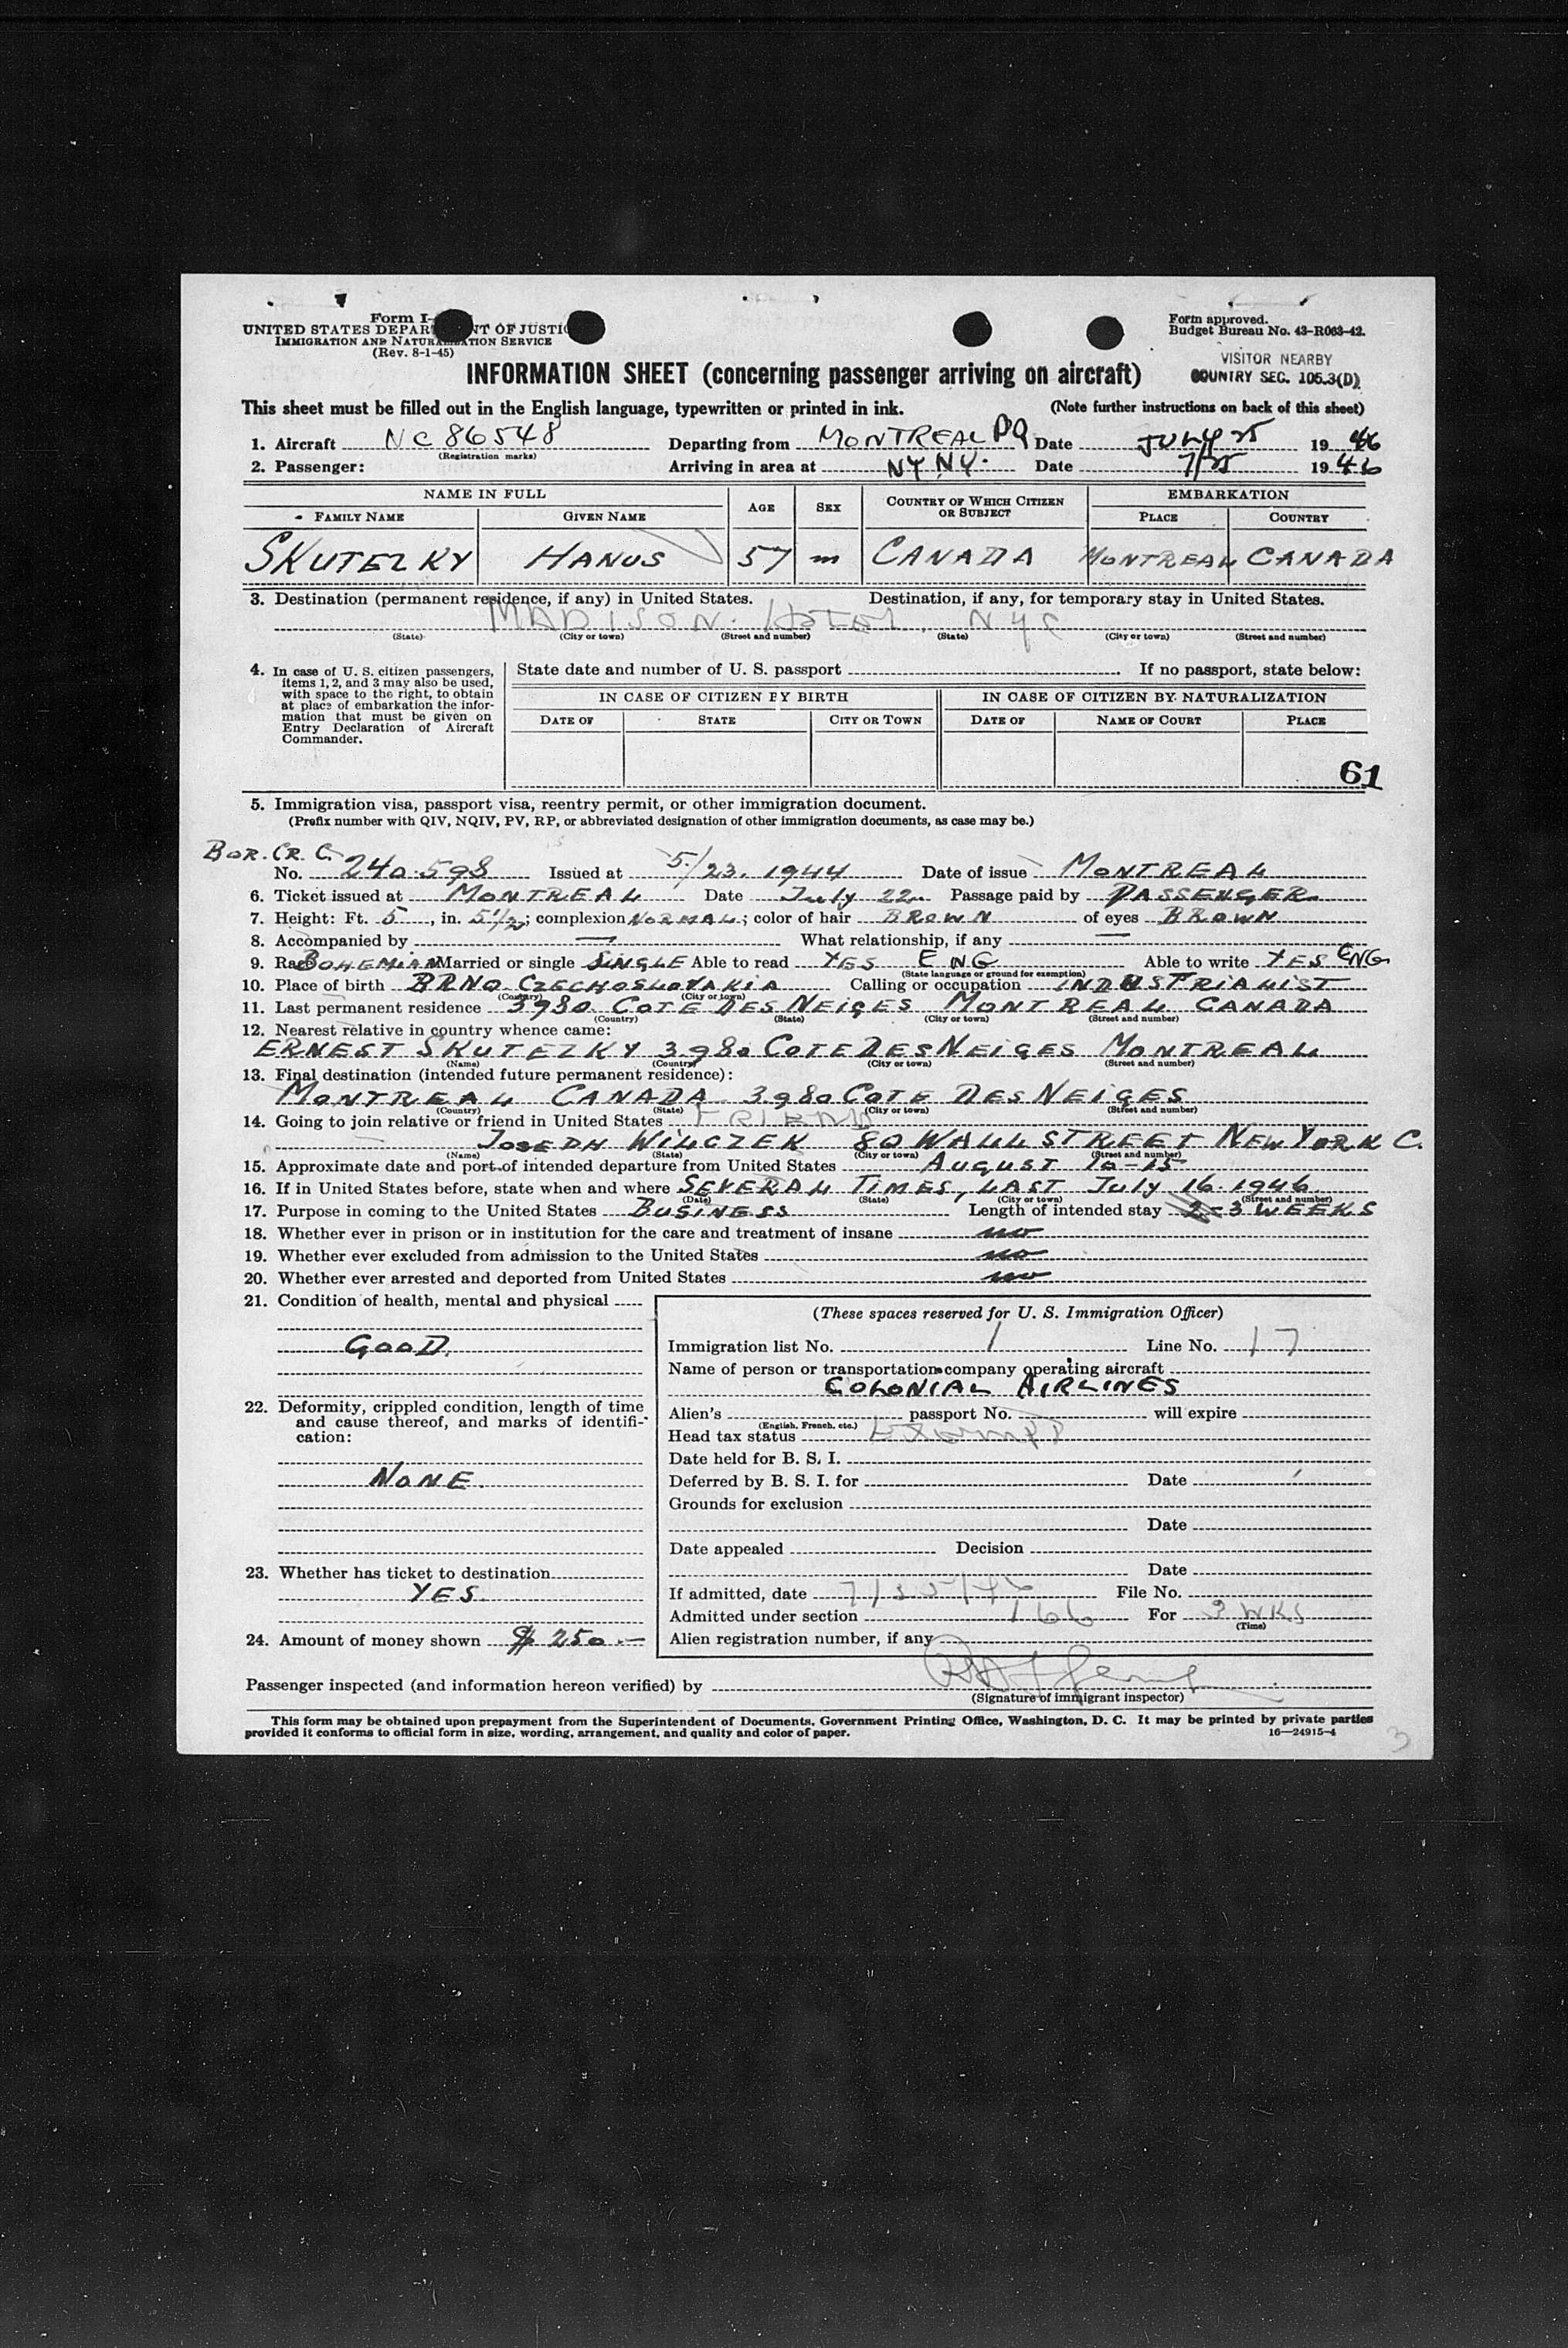 Form I-
UNITED STATES DEPAR NT OF JUSTI
IMMIGRATION AND NATURALIZATION SERVICE
(Rev. 8-1-45)
Form approved.
Budget Bureau No. 43-R063-42.
VISITOR NEARBY
COUNTRY SEC. 105.3(D)
INFORMATION SHEET (concerning passenger arriving on aircraft)
This sheet must be filled out in the English language, typewritten or printed in ink. (Note further instructions on back of this sheet)
1. Aircraft NC 86548 Departing from MONTREAL PQ Date JULY 25 1946
(Registration marks)
2. Passenger: Arriving in area at NY NY. Date 7/25 1946
NAME IN FULL AGE SEX COUNTRY OF WHICH CITIZEN OR SUBJECT EMBARKATION
FAMILY NAME GIVEN NAME PLACE COUNTRY
SKUTEZKY HANUS 57 m CANADA MONTREAL CANADA
3. Destination (permanent residence, if any) in United States. Destination, if any, for temporary stay in United States.
MADISON HOTEL NYC
(State) (City or town) (Street and number) (State) (City or town) (Street and number)
4. In case of U. S. citizen passengers, items 1, 2, and 3 may also be used, with space to the right, to obtain at place of embarkation the information that must be given on Entry Declaration of Aircraft Commander.
State date and number of U. S. passport If no passport, state below:
IN CASE OF CITIZEN BY BIRTH IN CASE OF CITIZEN BY NATURALIZATION
DATE OF STATE CITY OR TOWN DATE OF NAME OF COURT PLACE
61
5. Immigration visa, passport visa, reentry permit, or other immigration document.
(Prefix number with QIV, NQIV, PV, RP, or abbreviated designation of other immigration documents, as case may be.)
BOR. CR. C.
No. 240.598 Issued at 5/23. 1944 Date of issue MONTREAL
6. Ticket issued at MONTREAL Date July 22 Passage paid by PASSENGER
7. Height: Ft. 5, in. 5 1/2; complexion NORMAL; color of hair BROWN of eyes BROWN
8. Accompanied by — What relationship, if any —
9. Race BOHEMIAN Married or single SINGLE Able to read YES ENG Able to write YES ENG
(State language or ground for exemption)
10. Place of birth BRNO CZECHOSLOVAKIA Calling or occupation INDUSTRIALIST
(Country) (City or town)
11. Last permanent residence 3980 COTE DES NEIGES MONTREAL CANADA
(Country) (State) (City or town) (Street and number)
12. Nearest relative in country whence came:
ERNEST SKUTEZKY 3980 COTE DES NEIGES MONTREAL
(Name) (Country) (City or town) (Street and number)
13. Final destination (intended future permanent residence):
MONTREAL CANADA 3980 COTE DES NEIGES
(Country) (State) (City or town) (Street and number)
14. Going to join relative or friend in United States FRIEND
JOSEPH WILCZEK 80 WALL STREET NEW YORK C.
(Name) (State) (City or town) (Street and number)
15. Approximate date and port of intended departure from United States AUGUST 10-15
16. If in United States before, state when and where SEVERAL TIMES, LAST July 16. 1946
(Date) (State) (City or town) (Street and number)
17. Purpose in coming to the United States BUSINESS Length of intended stay 2-3 WEEKS
18. Whether ever in prison or in institution for the care and treatment of insane no
19. Whether ever excluded from admission to the United States no
20. Whether ever arrested and deported from United States no
21. Condition of health, mental and physical
GOOD.
22. Deformity, crippled condition, length of time and cause thereof, and marks of identification:
NONE.
23. Whether has ticket to destination
YES.
24. Amount of money shown $ 250.—
(These spaces reserved for U. S. Immigration Officer)
Immigration list No. 1 Line No. 17
Name of person or transportation company operating aircraft
COLONIAL AIRLINES
Alien's passport No. will expire
(English, French, etc.)
Head tax status Exempt
Date held for B. S. I.
Deferred by B. S. I. for Date
Grounds for exclusion
Date
Date appealed Decision
Date
If admitted, date 7/25/46 File No.
Admitted under section 166 For 3 WKS
(Time)
Alien registration number, if any
Passenger inspected (and information hereon verified) by
(Signature of immigrant inspector)
This form may be obtained upon prepayment from the Superintendent of Documents, Government Printing Office, Washington, D. C. It may be printed by private parties
provided it conforms to official form in size, wording, arrangement, and quality and color of paper. 16—24915-4
3